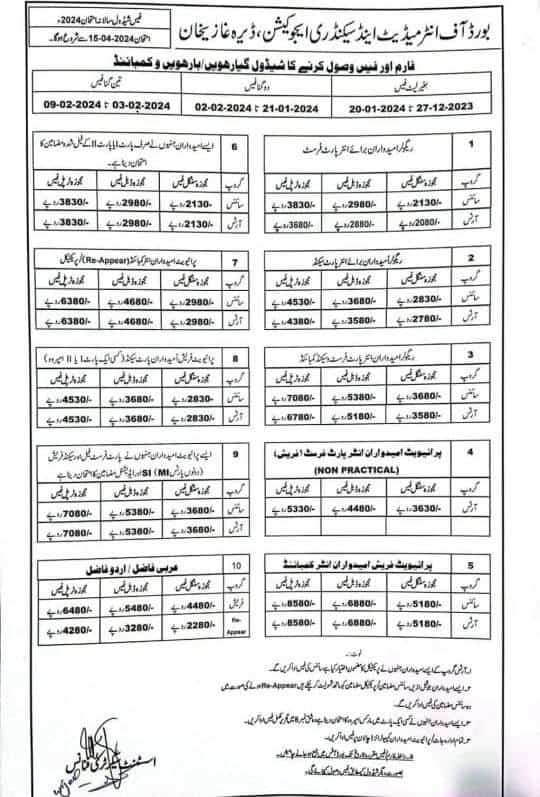 فیس شیڈول سالانہ امتحان 2024ء
امتحان 2024-04-15 سے شروع ہوگا۔
بورڈ آف انٹرمیڈیٹ اینڈ سیکنڈری ایجوکیشن، ڈیرہ غازیخان
فارم اور فیس وصول کرنے کا شیڈول گیارھویں/بارھویں و کمبائنڈ
بغیر لیٹ فیس
دو گنا فیس
تین گنا فیس
27-12-2023 تا 20-01-2024
21-01-2024 تا 02-02-2024
03-02-2024 تا 09-02-2024
1
ریگولر امیدواران برائے انٹر پارٹ فرسٹ
گروپ مجوزہ سنگل فیس مجوزہ ڈبل فیس مجوزہ ٹرپل فیس
سائنس 2130/-روپے 2980/-روپے 3830/-روپے
آرٹس 2080/-روپے 2880/-روپے 3680/-روپے
2
ریگولر امیدواران برائے انٹر پارٹ سیکنڈ
گروپ مجوزہ سنگل فیس مجوزہ ڈبل فیس مجوزہ ٹرپل فیس
سائنس 2830/-روپے 3680/-روپے 4530/-روپے
آرٹس 2780/-روپے 3580/-روپے 4380/-روپے
3
ریگولر امیدواران انٹر پارٹ فرسٹ و سیکنڈ کمبائنڈ
گروپ مجوزہ سنگل فیس مجوزہ ڈبل فیس مجوزہ ٹرپل فیس
سائنس 3680/-روپے 5380/-روپے 7080/-روپے
آرٹس 3580/-روپے 5180/-روپے 6780/-روپے
4
پرائیویٹ امیدواران انٹر پارٹ فرسٹ (فریش)
(NON PRACTICAL)
گروپ مجوزہ سنگل فیس مجوزہ ڈبل فیس مجوزہ ٹرپل فیس
آرٹس 3630/-روپے 4480/-روپے 5330/-روپے
5
پرائیویٹ فریش امیدواران انٹر کمبائنڈ
گروپ مجوزہ سنگل فیس مجوزہ ڈبل فیس مجوزہ ٹرپل فیس
سائنس 5180/-روپے 6880/-روپے 8580/-روپے
آرٹس 5180/-روپے 6880/-روپے 8580/-روپے
6
ایسے امیدواران جنہوں نے صرف پارٹ I یا پارٹ II کے فیل شدہ مضامین کا
امتحان دینا ہے۔
گروپ مجوزہ سنگل فیس مجوزہ ڈبل فیس مجوزہ ٹرپل فیس
سائنس 2130/-روپے 2980/-روپے 3830/-روپے
آرٹس 2130/-روپے 2980/-روپے 3830/-روپے
7
پرائیویٹ امیدواران انٹر کمبائنڈ (Re-Appear)/پریکٹیکل
گروپ مجوزہ سنگل فیس مجوزہ ڈبل فیس مجوزہ ٹرپل فیس
سائنس 2980/-روپے 4680/-روپے 6380/-روپے
آرٹس 2980/-روپے 4680/-روپے 6380/-روپے
8
پرائیویٹ فریش امیدواران پارٹ سیکنڈ (کسی ایک پارٹ I یا II امپروو)
گروپ مجوزہ سنگل فیس مجوزہ ڈبل فیس مجوزہ ٹرپل فیس
سائنس 2830/-روپے 3680/-روپے 4530/-روپے
آرٹس 2830/-روپے 3680/-روپے 4530/-روپے
9
ایسے پرائیویٹ امیدواران جنہوں نے پارٹ فرسٹ فیل اور سیکنڈ فریش
(دونوں پارٹس MI) SI اور ایڈیشنل مضامین کا امتحان دینا ہے
گروپ مجوزہ سنگل فیس مجوزہ ڈبل فیس مجوزہ ٹرپل فیس
سائنس 3680/-روپے 5380/-روپے 7080/-روپے
آرٹس 3680/-روپے 5380/-روپے 7080/-روپے
10
عربی فاضل / اردو فاضل
گروپ مجوزہ سنگل فیس مجوزہ ڈبل فیس مجوزہ ٹرپل فیس
فریش 4480/-روپے 5480/-روپے 6480/-روپے
Re-Appear 2280/-روپے 3280/-روپے 4280/-روپے
نوٹ:۔
۱۔ آرٹس گروپ کے ایسے امیدواران جنہوں نے پریکٹیکل کا مضمون اختیار کیا ہے سائنس کی فیس ادا کریں گے۔
۲۔ ایسے امیدواران جو قبل ازیں سائنس مضامین/پریکٹیکل مضامین کے ساتھ شمولیت کر چکے ہیں Re-Appear ہونے کی صورت میں
وہ سائنس مضامین کی فیس ادا کریں گے۔
اسسٹنٹ سیکرٹری فنانس